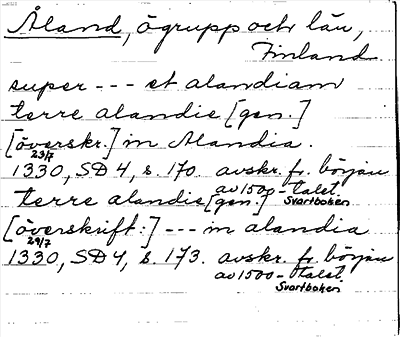 Åland, ögrupp och län,
Finland
super --- et alandiam
terre alandie [gen.]
[överskr.] in Alandia.
23/7
1330, SD 4, s. 170. avskr. fr. början
av 1500-talet.
Svartboken
terre alandie [gen.]
[överskrift:] --- in alandia
24/7
1330, SD 4, s. 173. avskr. fr. början
av 1500-talet.
Svartboken